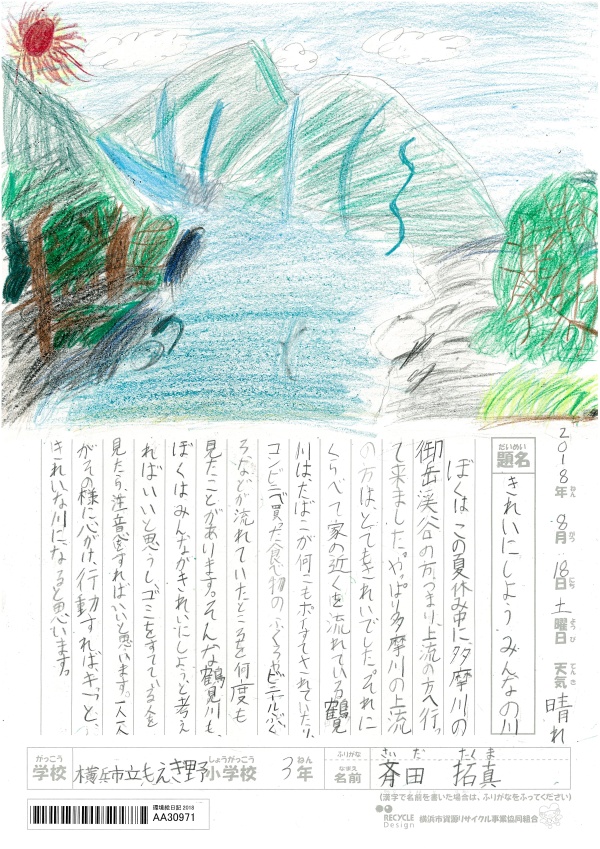 2018年8月18日土曜日 天気 晴れ
ねん がつ にち ようび てんき
だいめい
題名 きれいにしようみんなの川
ぼくはこの夏休み中に多摩川の
御岳渓谷の方つまり、上流の方へ行っ
て来ました。やっぱり多摩川の上流
の方はとてもきれいでした。それに
くらべて家の近くを流れている鶴見
川は、たばこが何こもポイすてされていたり、
コンビニで買った食べ物のふくろやビニールぶく
ろなどが流れていたところを何度も
見たことがあります。そんな鶴見川も、
ぼくはみんながきれいにしようと考え
ればいいと思うし、ゴミをすてている人を
見たら、注意すればいいと思います。一人一人
がその様に心がけ、行動すればきっと、
きれいな川になると思います。
がっこう しょうがっこう ねん ふりがな さいだ たくま
学校 横浜市立もえぎ野小学校 3年 なまえ 名前 斉田 拓真
(漢字で名前を書いた場合は、ふりがなをふってください)
環境絵日記 2018
AA30971
RECYCLE Design 横浜市資源リサイクル事業協同組合